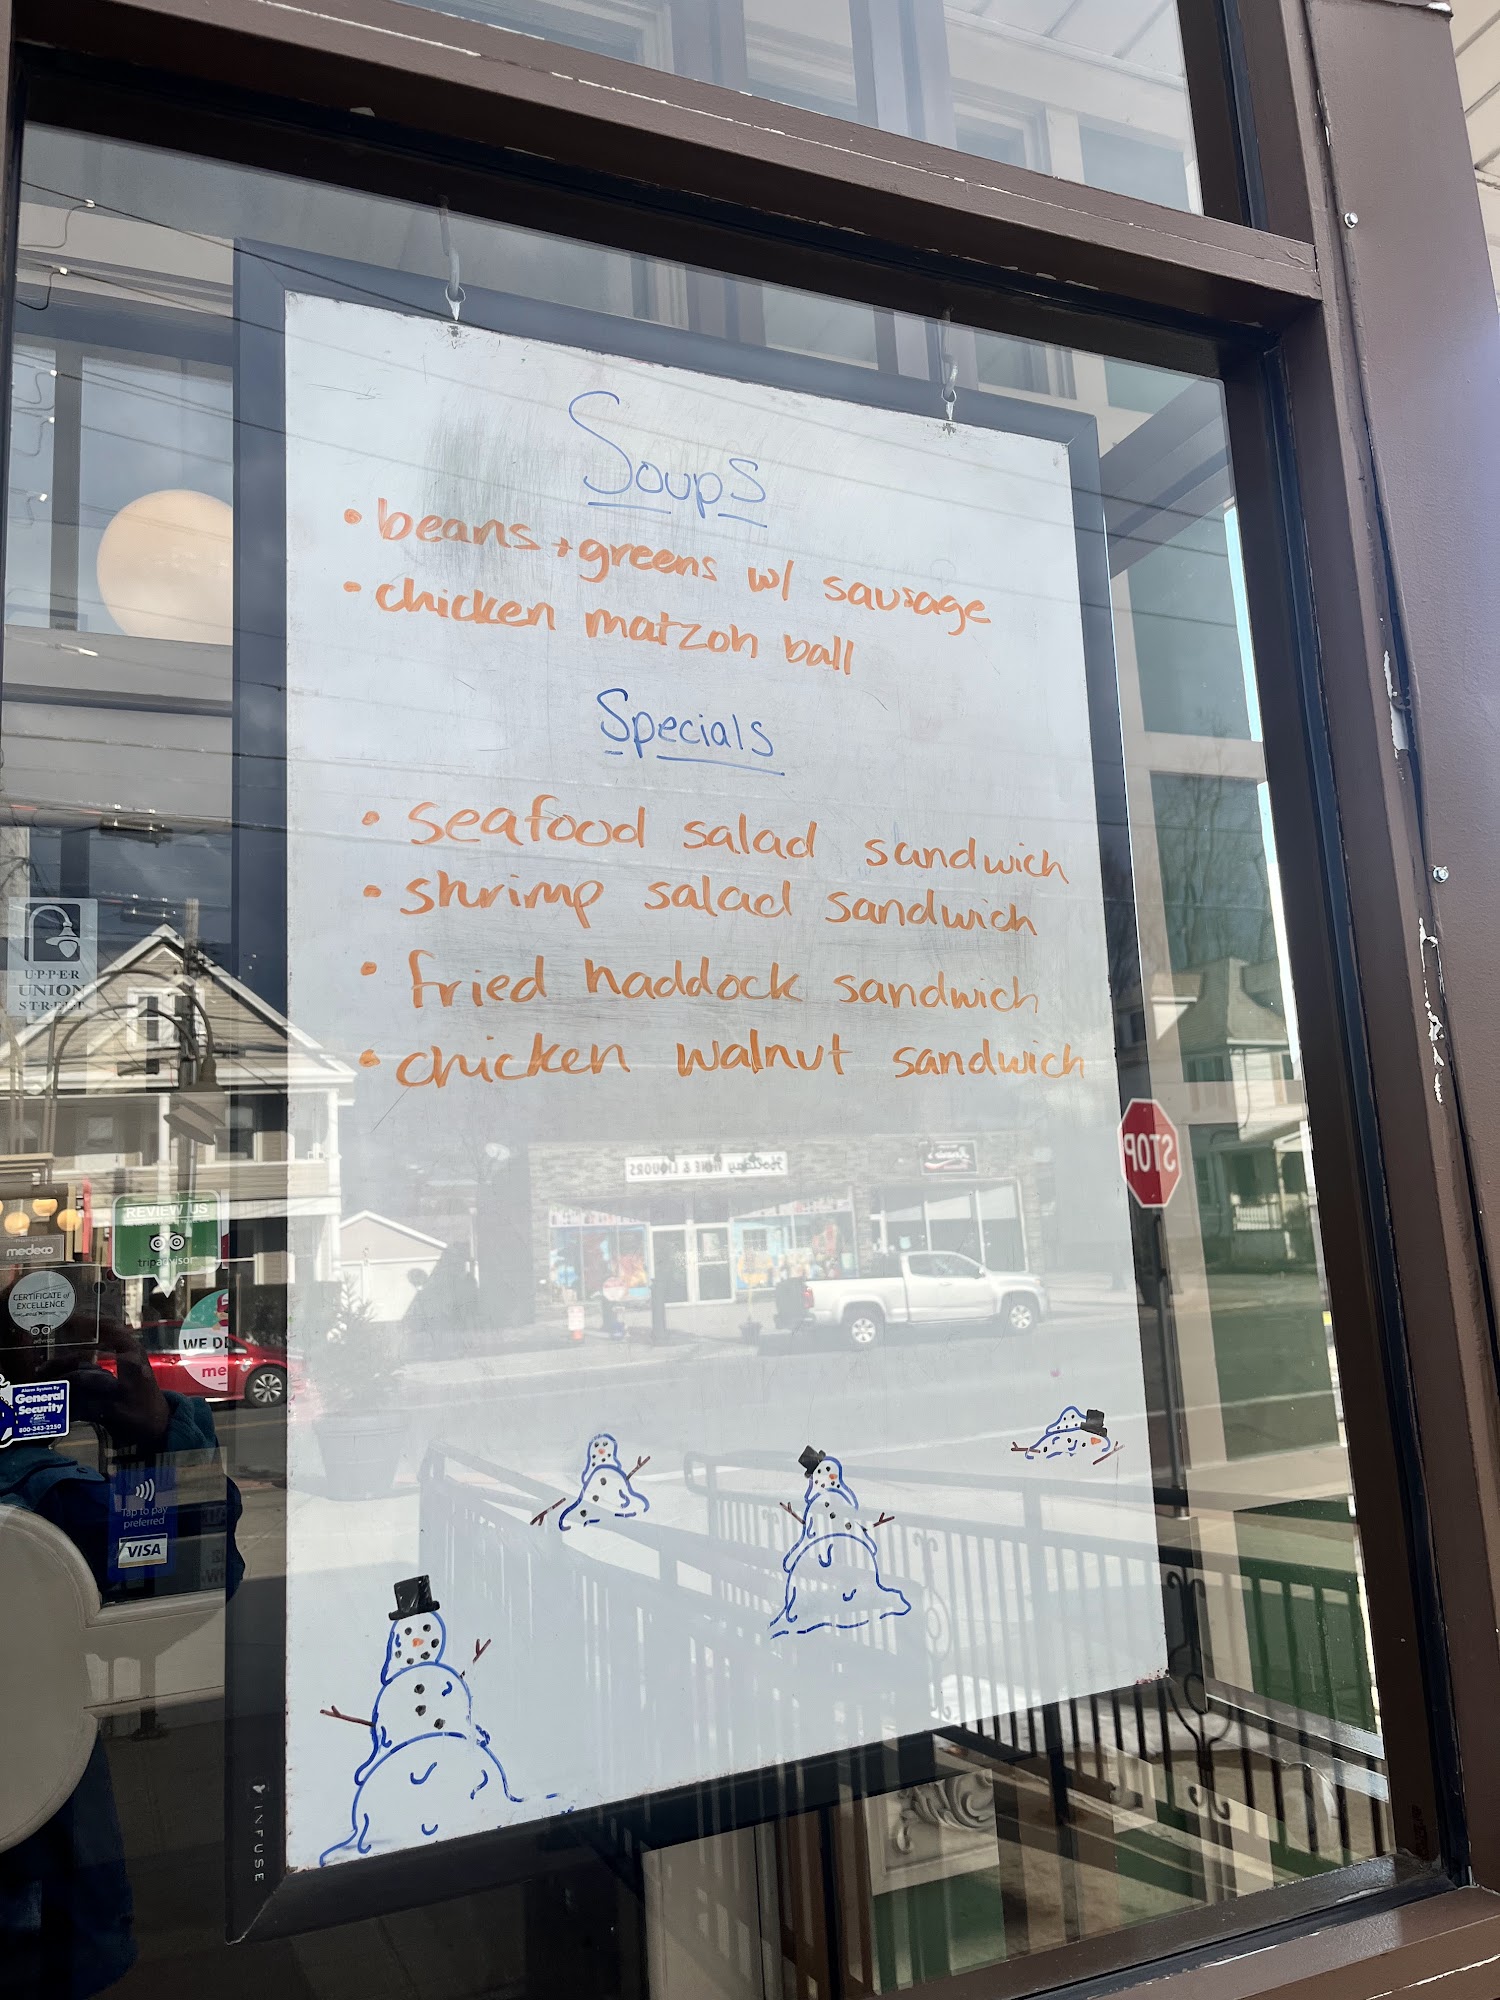 Soups
• beans + greens w/ sausage
• chicken matzoh ball
Specials
• seafood salad sandwich
• shrimp salad sandwich
• fried haddock sandwich
• chicken walnut sandwich
UPPER
UNION
STREET
REVIEW US
tripadvisor
medeco
CERTIFICATE of
EXCELLENCE
WE DE
me
Alarm System By
General
Security
800-343-2250
Tap to pay
preferred
VISA
Holiday WINE & LIQUORS
STOP
INFUSE